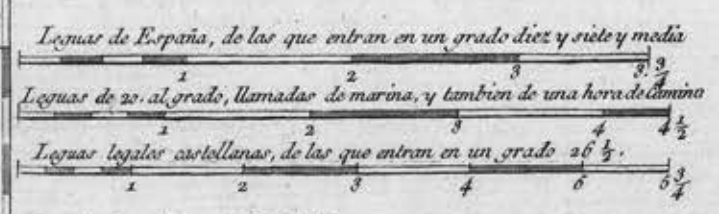 Leguas de España, de las que entran en un grado diez y siete y media
1 2 3 3. 3/4
Leguas de 20. al grado, llamadas de marina, y tambien de una hora de Camino
1 2 3 4 4 1/2
Leguas legales castellanas, de las que entran en un grado 26 1/2.
1 2 3 4 6 5 3/4